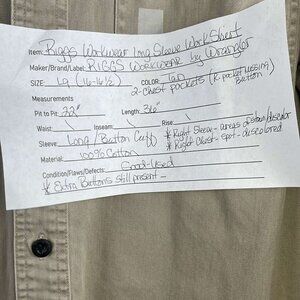 Item: Riggs Workwear Long Sleeve Work Shirt
Maker/Brand/Label: RIGGS Workwear by Wrangler
SIZE: Lg (16-16½) COLOR: Tan
2-Chest Pockets (R. pocket missing Button)
Measurements
Pit to Pit: 23" Length: 36"
Waist: Inseam: Rise:
Sleeve: Long/Button Cuff * Right Sleeve - areas discolor
Material: 100% Cotton * Right Chest - spot - discolored
Condition/Flaws/Defects: Good-Used
* Extra Buttons still present -